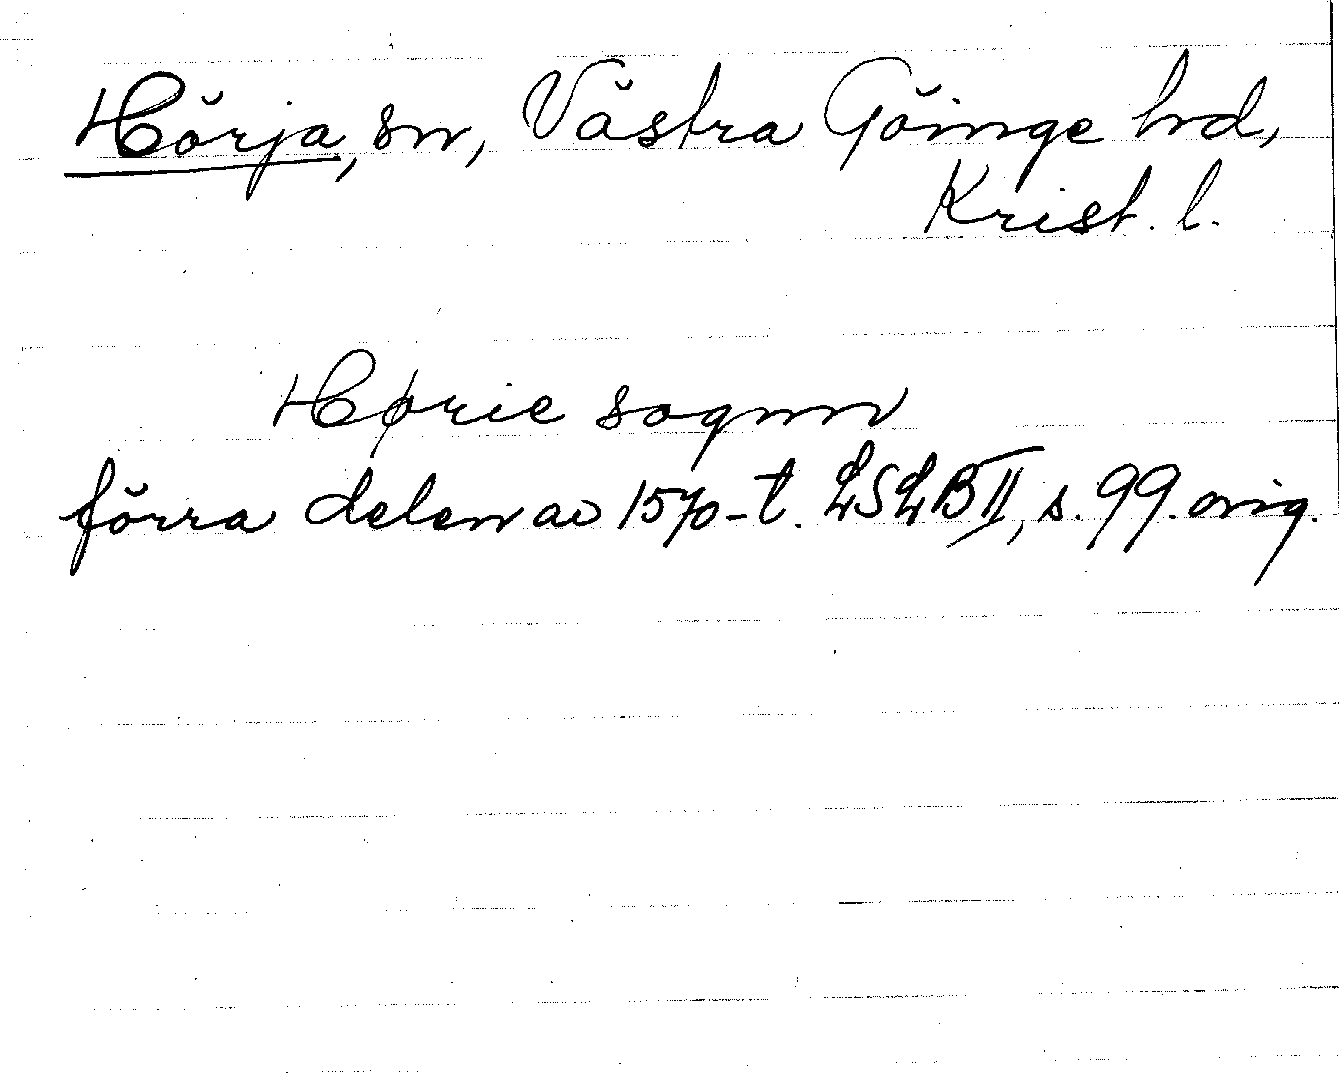 Hörja, sn, Västra Göinge hd,
Krist. l.
Hørie sognn
förra delen av 1570-t. LSLB II, s. 99. orig.